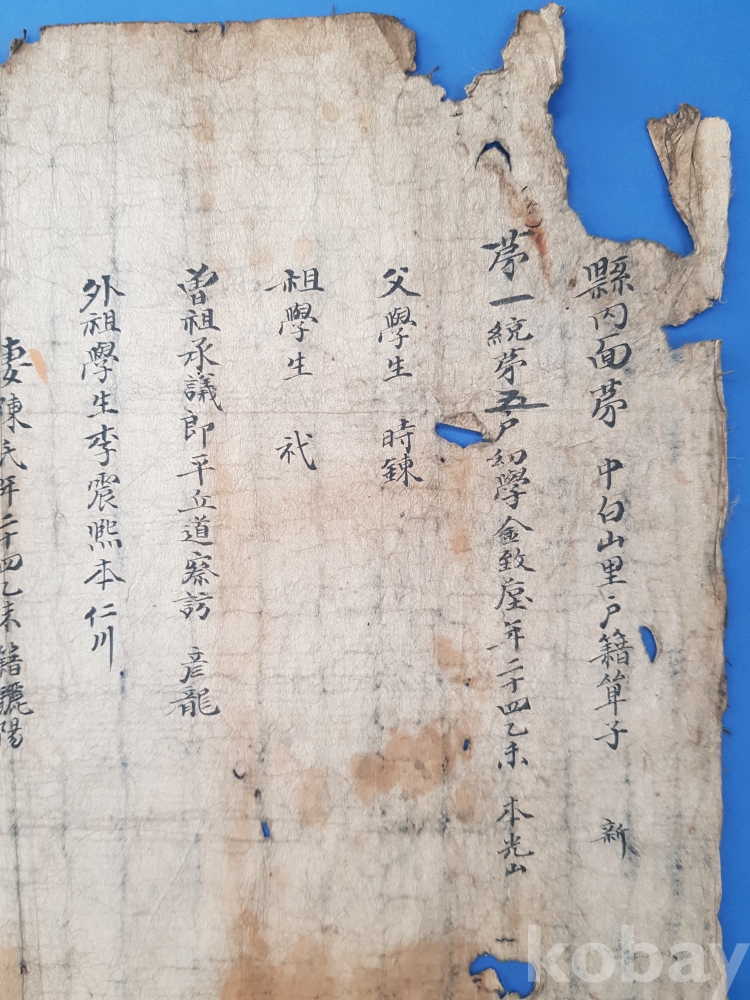 縣內面第 中白山里戶籍單子 新
第一統第五戶幼學金致 年二十四乙未 本光山
父學生 時鍊
祖學生 
曾祖承議郎平丘道察訪 彦龍
外祖學生李震熙本仁川
妻陳氏年二十四乙未籍驪陽
kobay